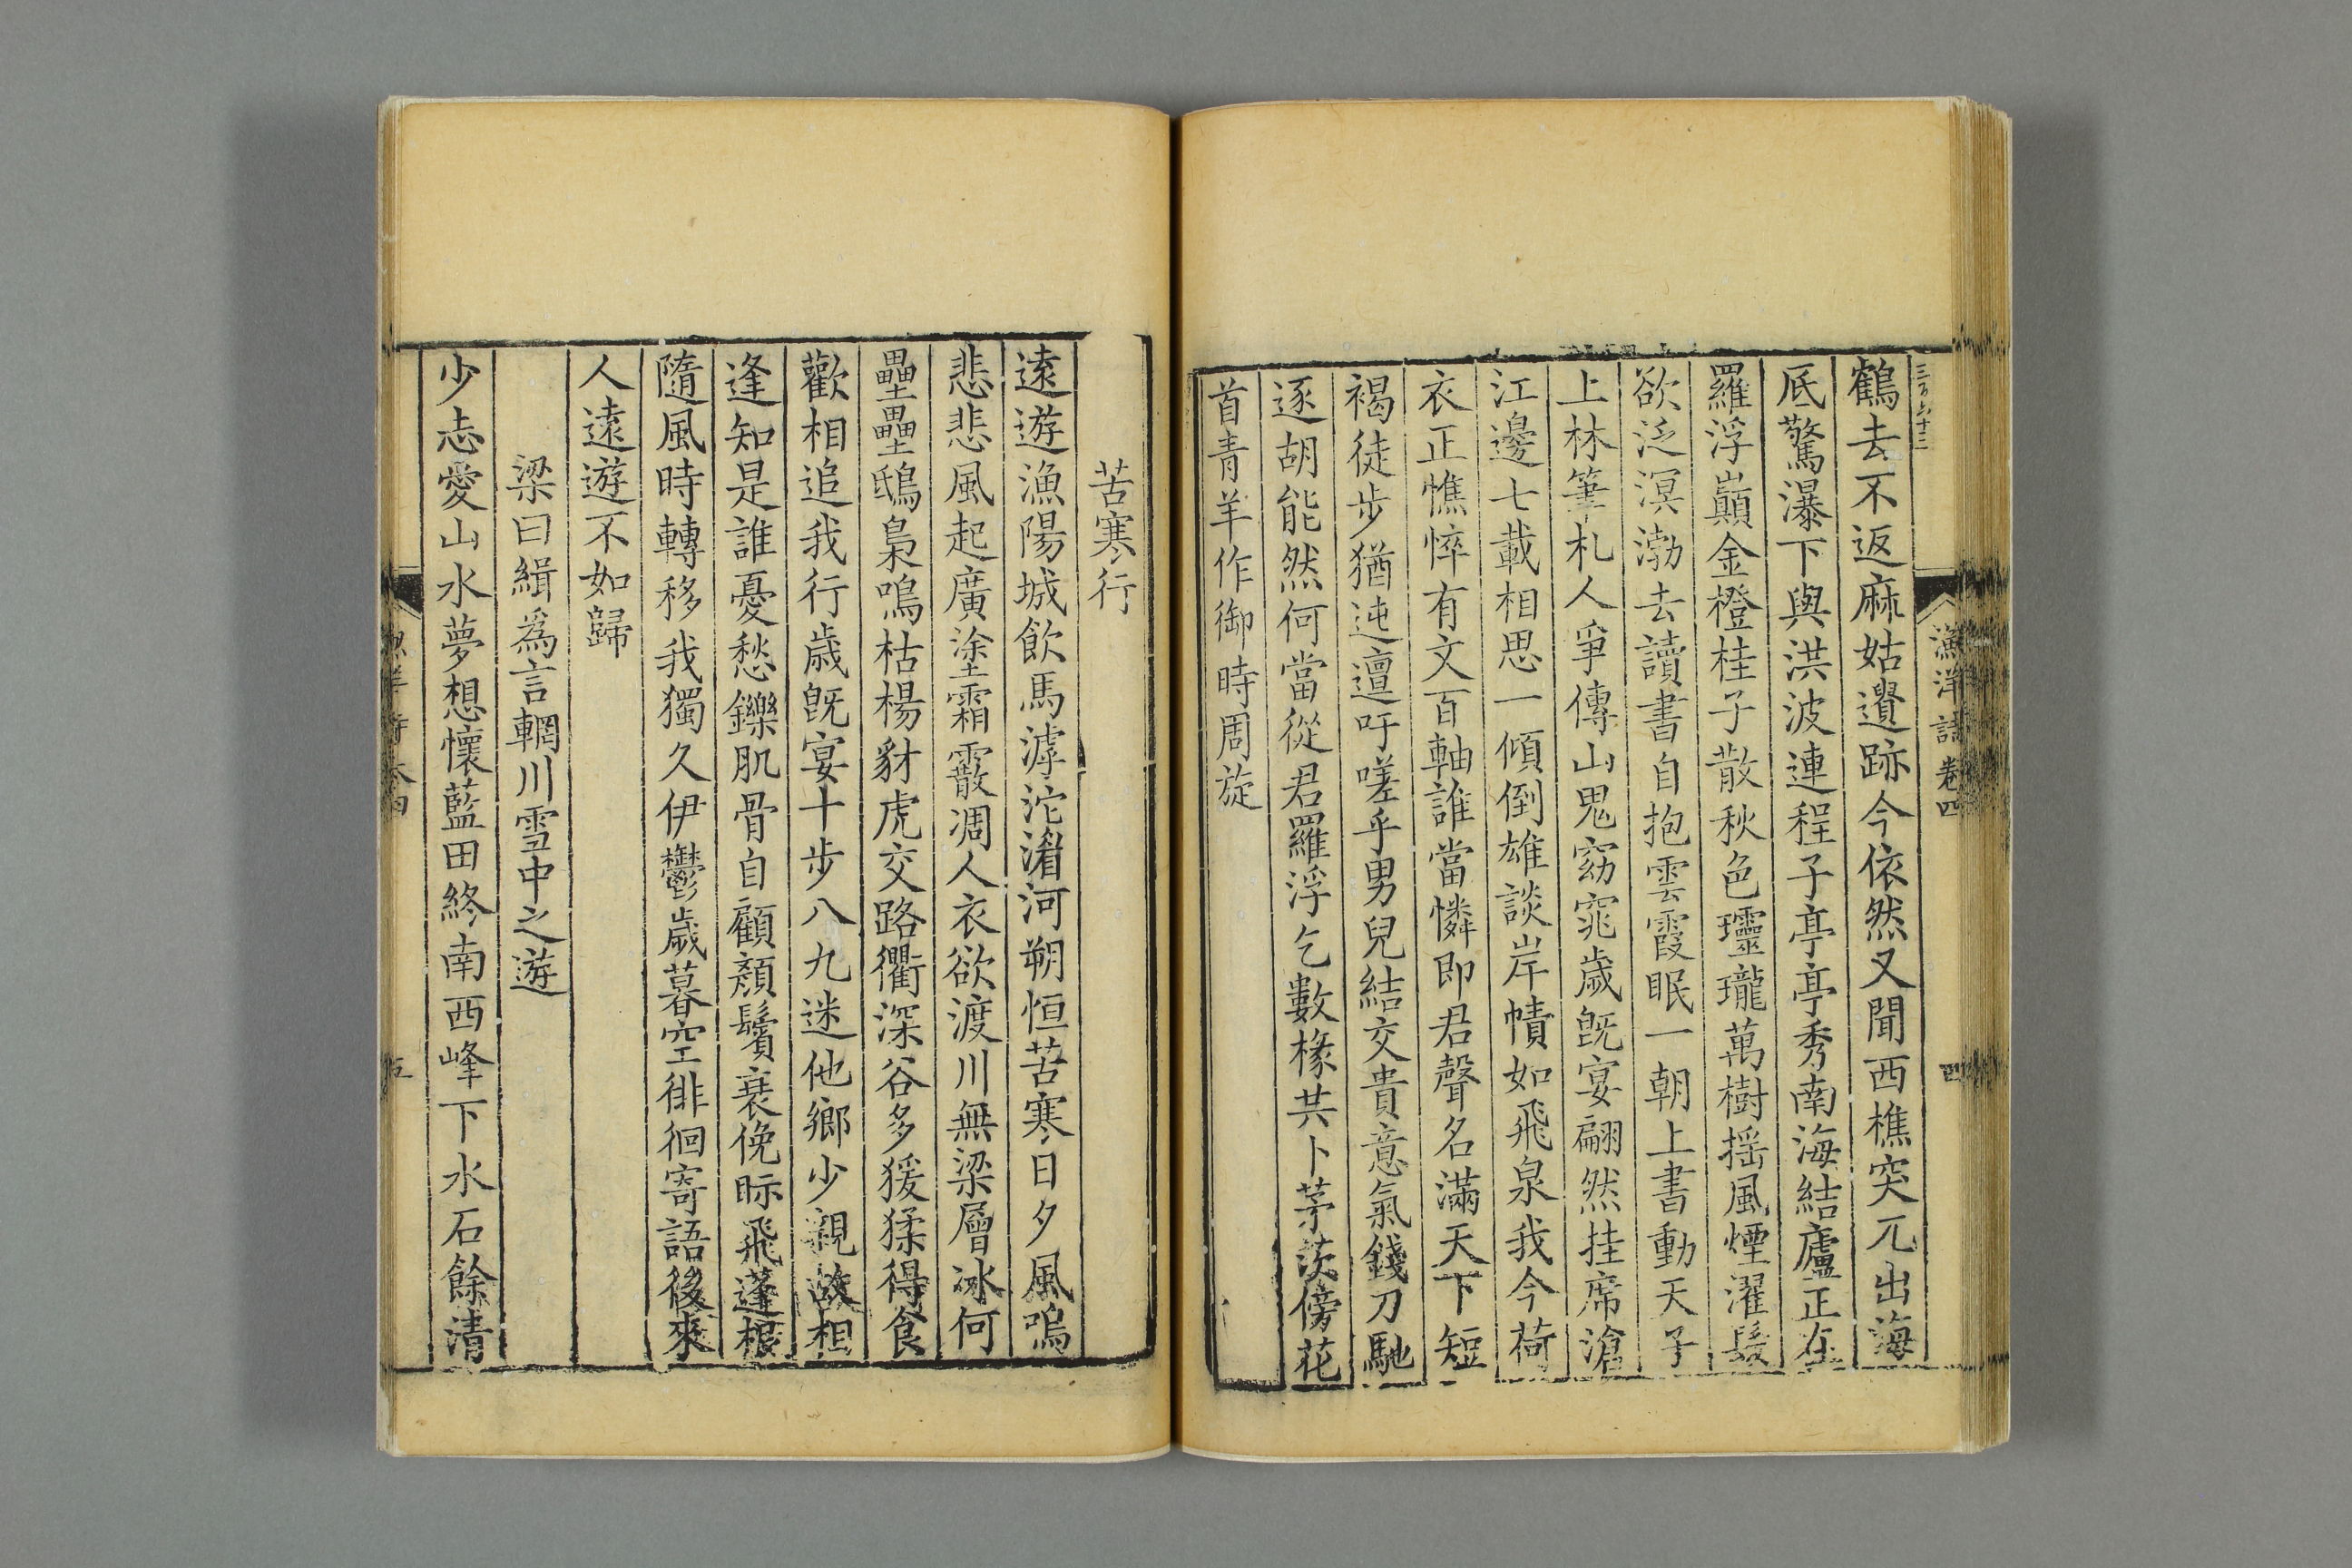 三百六十三
漁洋詩 卷四
四
鶴去不返麻姑遺跡今依然又聞西樵突兀出海
底驚瀑下與洪波連程子亭亭秀南海結廬正在
羅浮巔金橙桂子散秋色瓏萬樹揺風煙濯髮
欲泛溟渤去讀書自抱雲霞眠一朝上書動天子
上林筆札人爭傳山鬼窈窕歲旣宴翩然挂席滄
江邊七載相思一傾倒雄談岸幘如飛泉我今荷
衣正憔悴有文百軸誰當憐即君聲名滿天下短
褐徒步猶迍邅吁嗟乎男兒結交貴意氣錢刀馳
逐胡能然何當從君羅浮乞數椽共卜茅茨傍花
首青羊作御時周旋
苦寒行
遠遊漁陽城飲馬滹沱湄河朔恒苦寒日夕風嗚
悲悲風起廣塗霜霰凋人衣欲渡川無梁層冰何
壘壘鴟梟鳴枯楊豺虎交路衢深谷多猨猱得食
歡相追我行歲旣宴十步八九迷他鄉少親故相
逢知是誰憂愁鑠肌骨自顧顏鬢衰俛眎飛蓬根
隨風時轉移我獨久伊鬱歲暮空徘徊寄語後來
人遠遊不如歸
梁曰緝爲言輞川雪中之遊
少志愛山水夢想懷藍田終南西峰下水石餘清
卷四
五